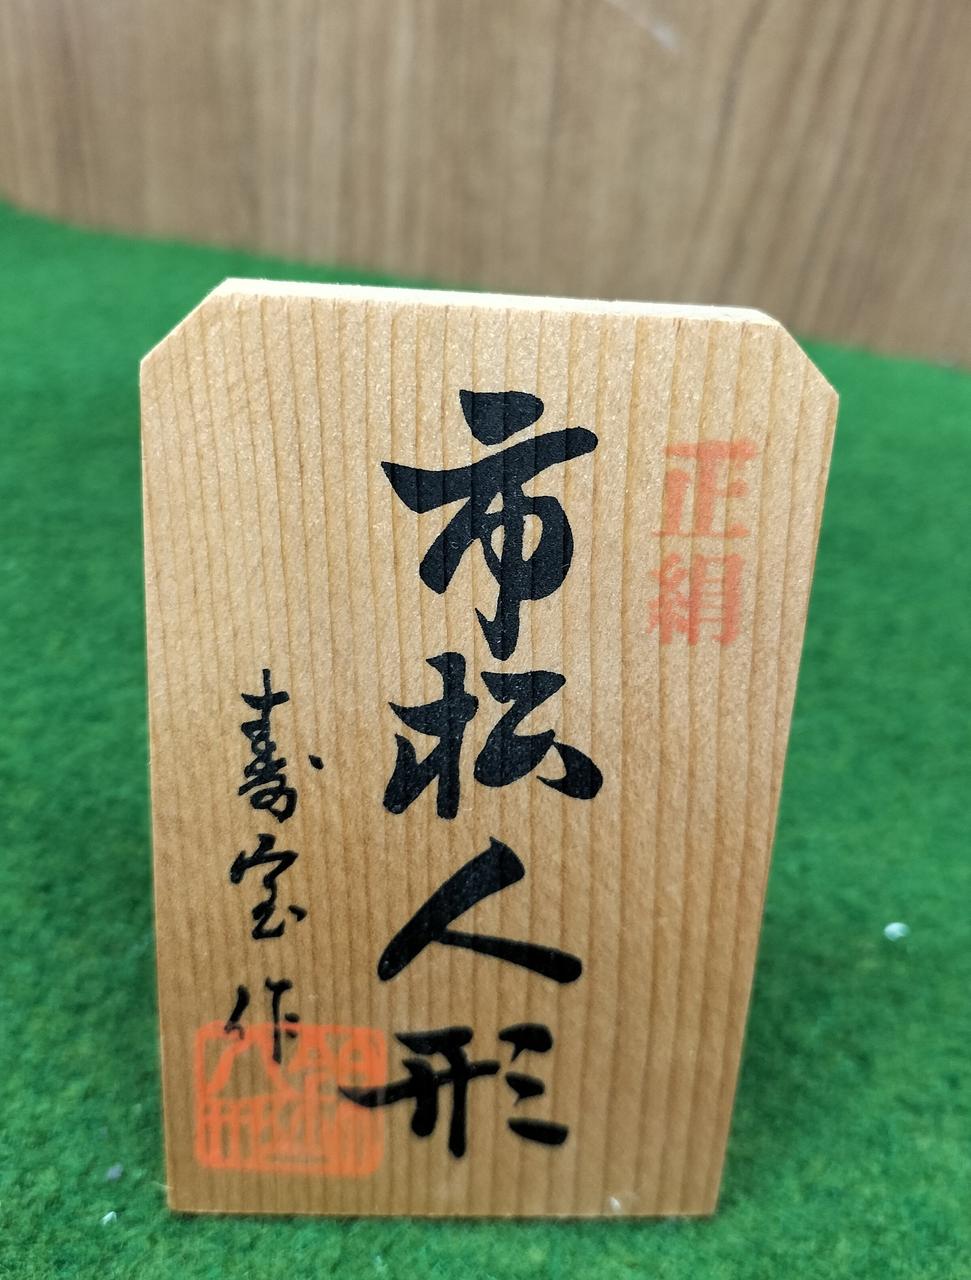 正絹
市松人形
寿宝作